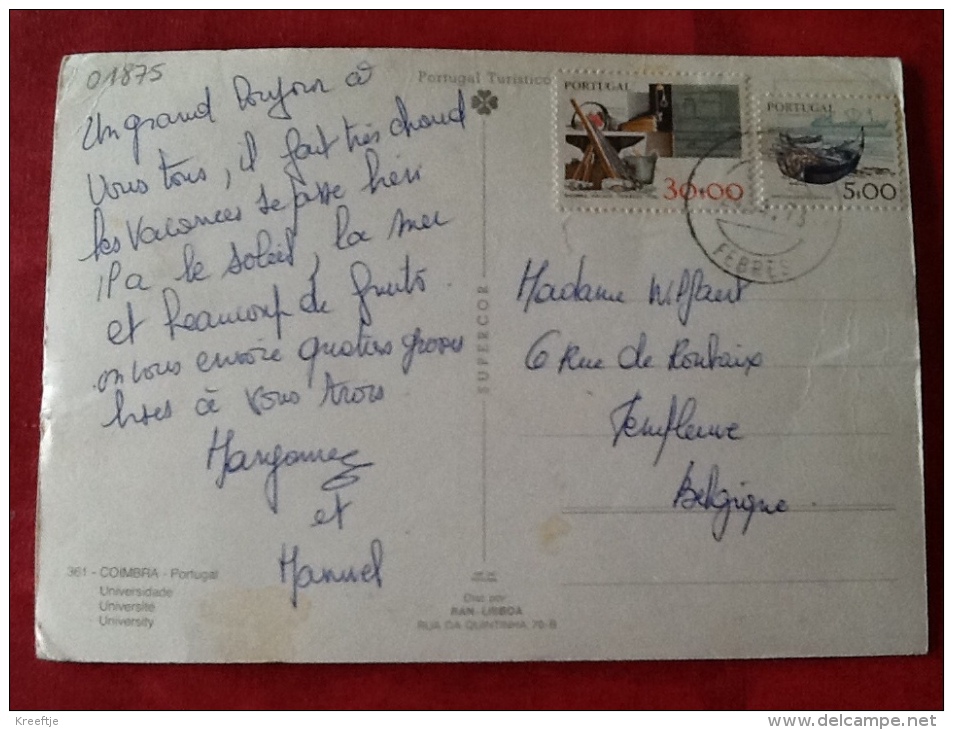 01875
Un grand Bonjour à
Vous tous, il fait très chaud
les Vacances se passe bien
il a le soleil, la mer
et beaucoup de fruits.
on vous envoie quatres grosses
bises à vous trois
et
Manuel
361 - COIMBRA - Portugal
Universidade
Université
University
Portugal Turístico
SUPERCOR
Dist. por
RAN - LISBOA
RUA DA QUINTINHA 70-B
PORTUGAL
30+00
PORTUGAL
5+00
FEBRES
Madame
6 Rue de Roubaix
Templeuve
Belgique.
Kreeftje
www.delcampe.net